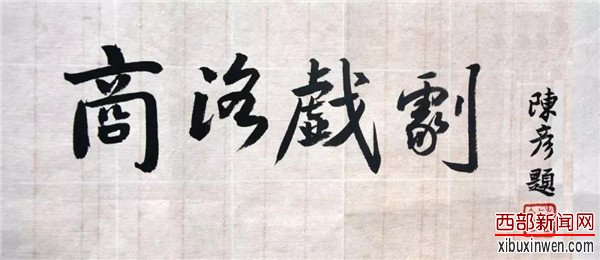 商洛戲劇
陳彦題
西部新闻网
xibuxinwen.com